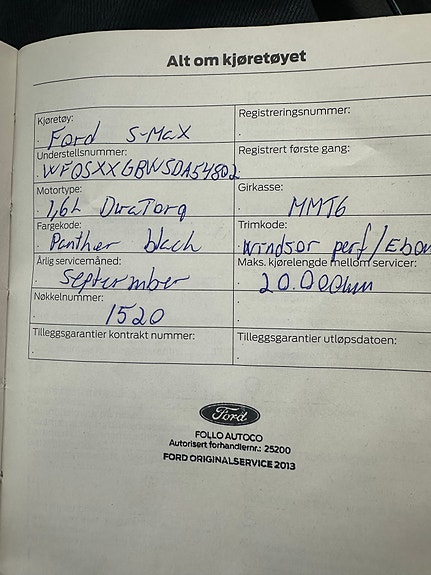 Alt om kjøretøyet
Kjøretøy:
Ford S-MaX
Registreringsnummer:
Understellsnummer:
WF0SXXGBWSDA54802
Registrert første gang:
Motortype:
1,6L DuraTorq
Girkasse:
MMT6
Fargekode:
Panther black
Trimkode:
Windsor perf/Ebon
Årlig servicemåned:
September
Maks. kjørelengde mellom servicer:
20.000mm
Nøkkelnummer:
1520
Tilleggsgarantier kontrakt nummer:
Tilleggsgarantier utløpsdatoen:
Ford
FOLLO AUTOCO
Autorisert forhandlernr.: 25200
FORD ORIGINALSERVICE 2013